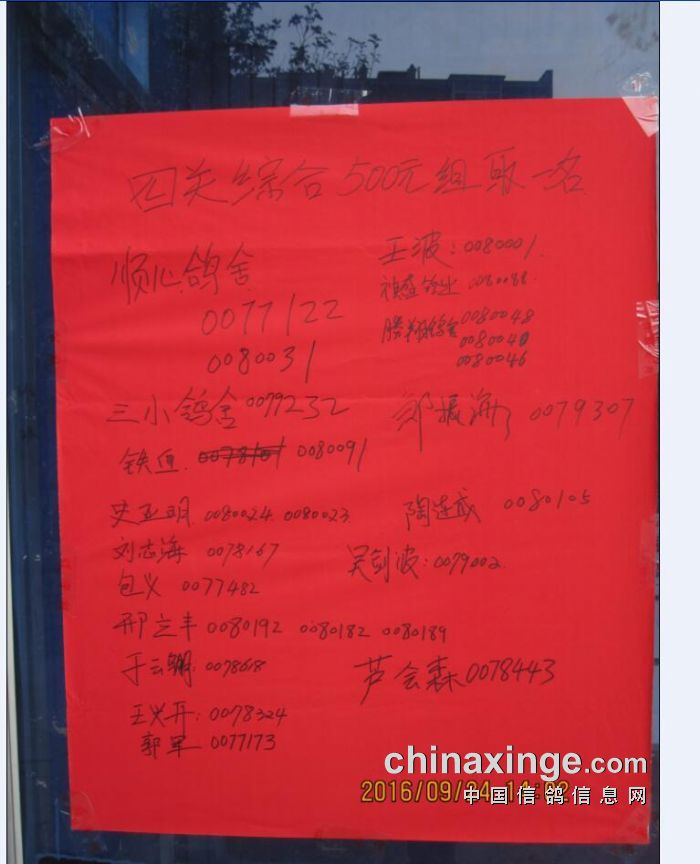 四关综合500元组取一名
顺心鸽舍
0077122
0080031
王波：0080001
神鹰鸽业 0080088
腾翔鸽舍 0080048
0080040
0080046
三小鸽舍 0079232
郑振海 0079307
铁血 0080091
史亚明 0080024 0080023
陶连成 0080105
刘志海 0078167
吴剑波：0079002
包义 0077482
邢立丰 0080192 0080182 0080189
于云翔：0078618
芦会森 0078443
王兴丹：0078324
郭军 0077173
chinaxinge.com
2016/09/04 14:02
中国信鸽信息网